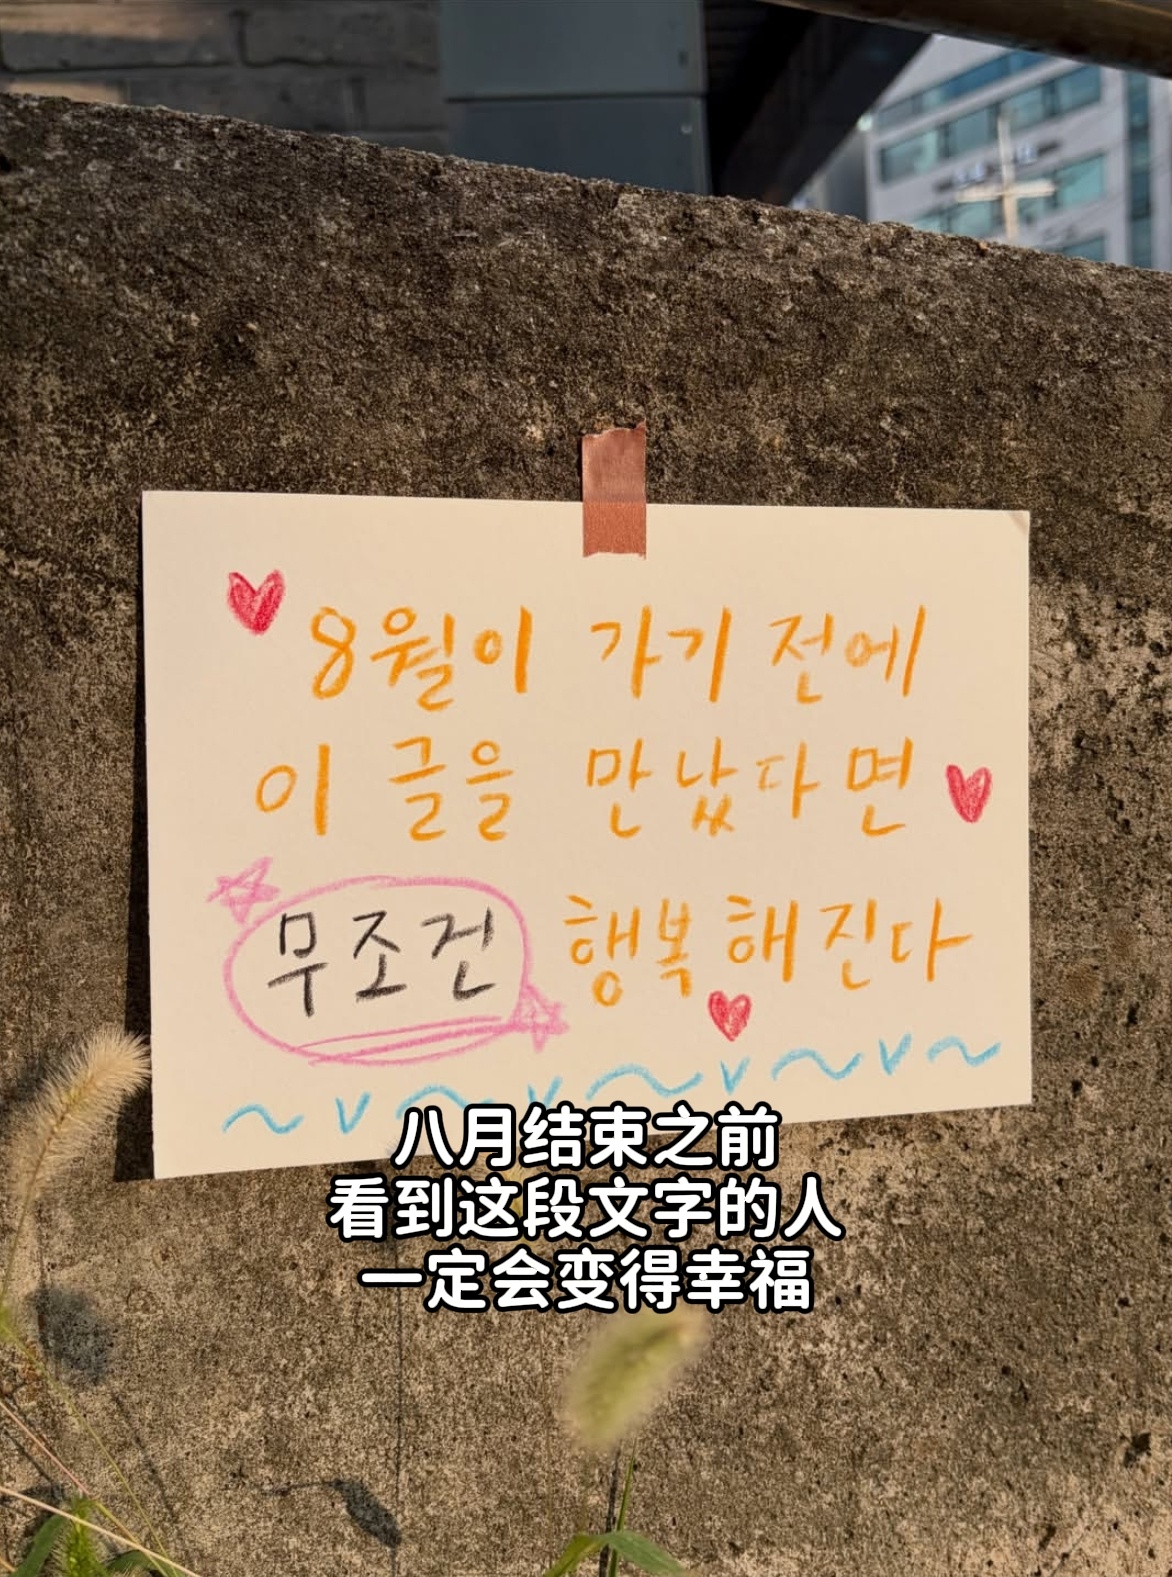 8월이 가기 전에
이 글을 만났다면
무조건 행복해진다
八月结束之前
看到这段文字的人
一定会变得幸福